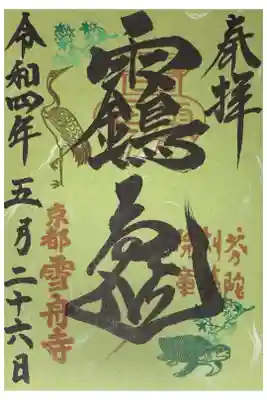 奉拝
芬陀
靏亀
京都雪舟寺
令和四年五月二十六日